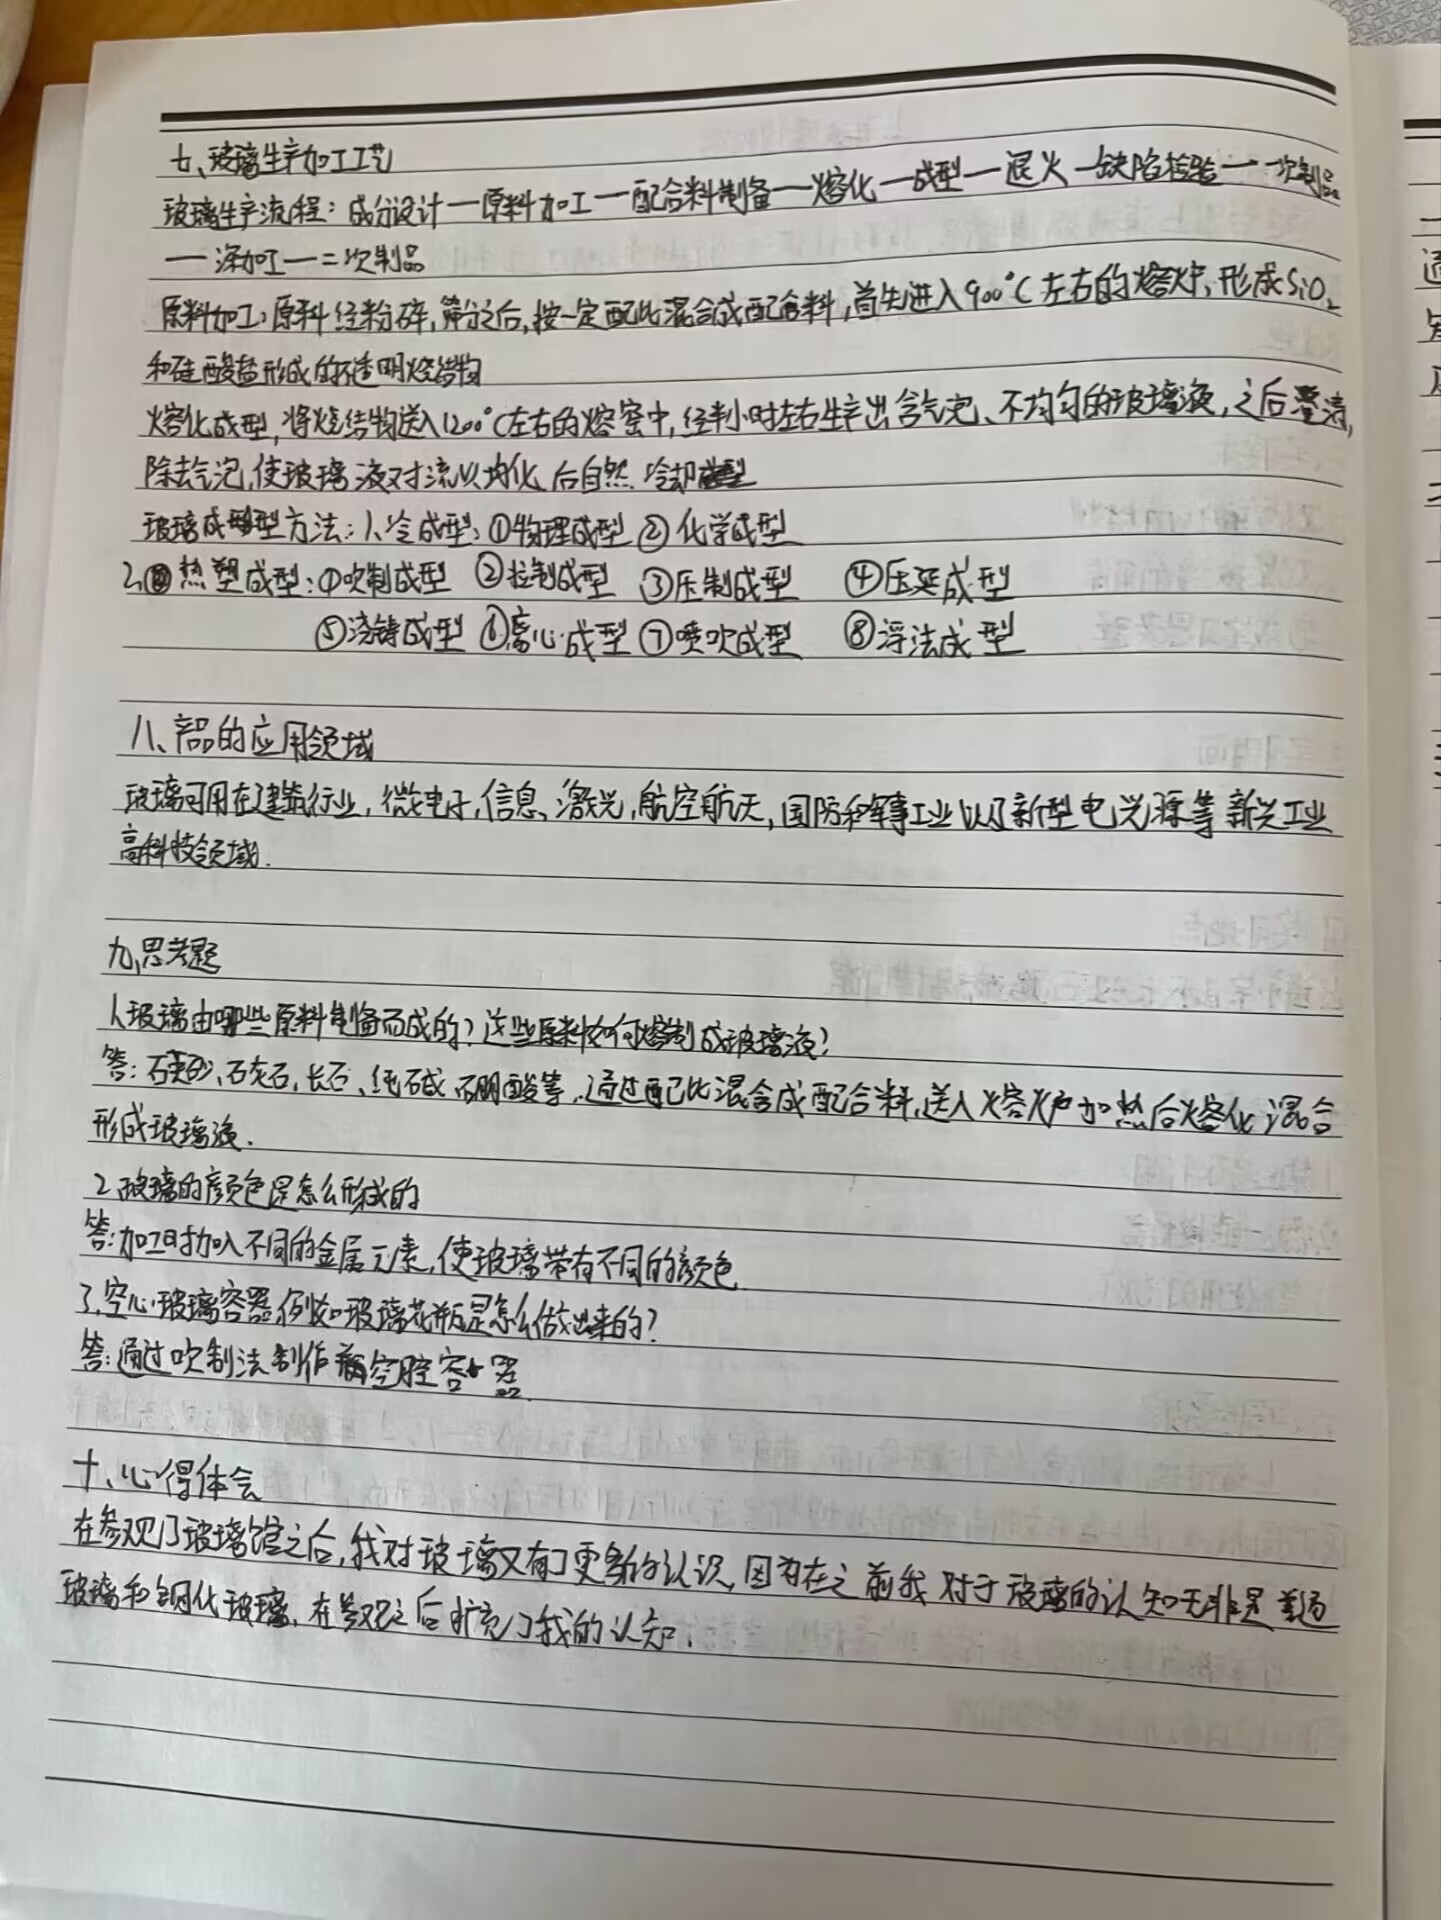 七、玻璃生产加工工艺
玻璃生产流程：成分设计—原料加工—配合料制备—熔化—成型—退火—缺陷检验—一次制品
—深加工—二次制品
原料加工：原料经粉碎，筛分之后，按一定配比混合成配合料，首先进入900°C左右的熔炉，形成SiO₂
和硅酸盐形成的不透明烧结物
熔化成型，将烧结物送入1200°C左右的熔窑中，经半小时左右生产出含气泡、不均匀的玻璃液，之后澄清，
除去气泡，使玻璃液对流以均化后自然冷却成型
玻璃成型方法：1、冷成型：①物理成型 ②化学成型
2、热塑成型：①吹制成型 ②拉制成型 ③压制成型 ④压延成型
⑤浇铸成型 ⑥离心成型 ⑦喷吹成型 ⑧浮法成型
八、产品的应用领域
玻璃可用在建筑行业，微电子，信息、激光，航空航天，国防和军事工业以及新型电光源等新兴工业
高科技领域．
九、思考题
1、玻璃由哪些原料制备而成的？这些原料如何熔制成玻璃液？
答：石英砂、石灰石，长石、纯碱、硼酸等，通过配比混合成配合料，送入熔炉加热后熔化混合
形成玻璃液．
2、玻璃的颜色是怎么形成的
答：加工时加入不同的金属元素，使玻璃带有不同的颜色
3、空心玻璃容器，例如玻璃花瓶是怎么做出来的？
答：通过吹制法制作空腔容器
十、心得体会
在参观了玻璃馆之后，我对玻璃又有了更多的认识，因为在之前我对于玻璃的认知无非是普通
玻璃和钢化玻璃，在参观之后扩充了我的认知．